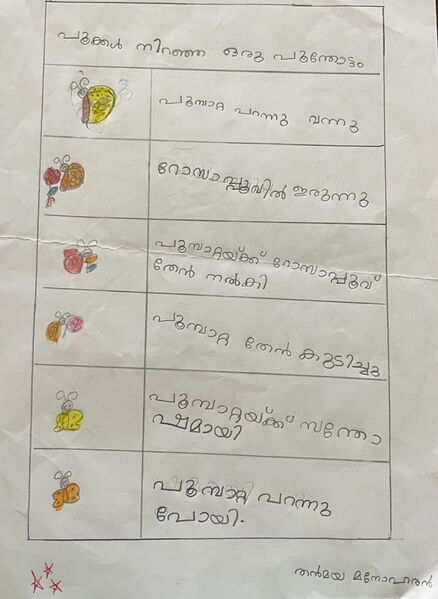 പൂക്കൾ നിറഞ്ഞ ഒരു പൂന്തോട്ടം
പൂമ്പാറ്റ പറന്നു വന്നു
റോസാപ്പൂവിൽ ഇരുന്നു
പൂമ്പാറ്റയ്ക്ക് റോസാപ്പൂവ്
തേൻ നൽകി
പൂമ്പാറ്റ തേൻ കുടിച്ചു
പൂമ്പാറ്റയ്ക്ക് സന്തോ
ഷമായി
പൂമ്പാറ്റ പറന്നു
പോയി.
തൻമയ മനോഹരൻ